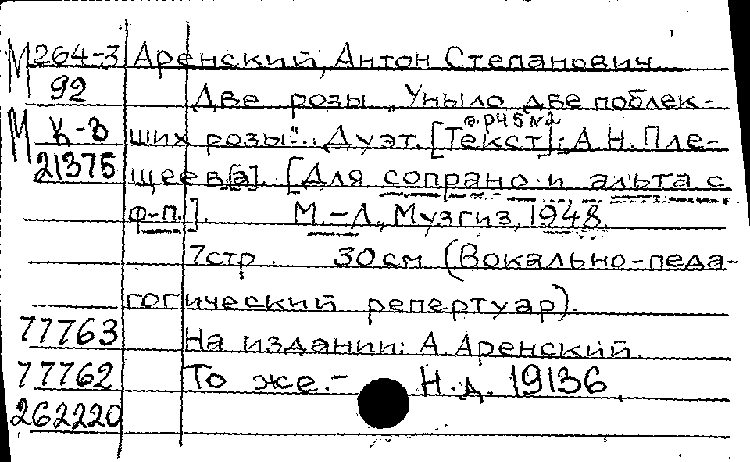 М 264-3 Аренский, Антон Степанович
92 Две розы „Уныло две поблек-
ор 45 №2
М К-В ших розы“.. Дуэт. [Текст]: А. Н. Пле-
21375 щеев[а]. [Для сопрано и альта с
ф-п.]. М.-Л., Музгиз, 1948.
7 стр. 30 см (Вокально-педа-
гогический репертуар).
77763 На издании: А. Аренский.
77762 То же.- Н.д. 19136.
262220